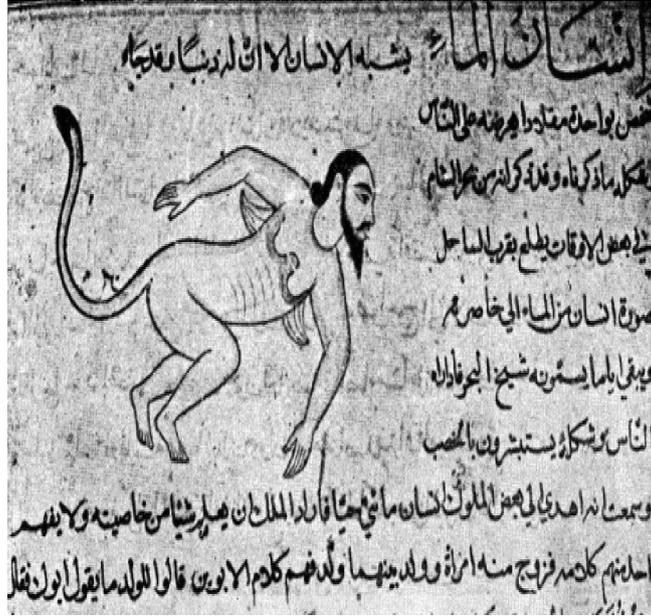 انسان الماء يشبه الانسان الا ان له ذنبا وقد جاء
شخص بواحدة مقددا وعرضه على الناس
وشكله ما ذكرناه وقد ذكر انه من بحر الشام
في بعض الاوقات يطلع بقرب الساحل
صورة انسان من الماء الي خاصرته
ويبقي اياما يسمونه شيخ البحر فاذا راه
الناس يستبشرون بالخصب
وسمعت انه اهدي الي بعض الملوك انسان مائي حيا فاراد الملك ان يعلم شيئا من خاصيته ولا يفهم
احد منهم كلامه فزوج منه امراة وولد بينهما ولد فهم كلام الابوين قالوا للولد ما يقول ابوك فقال